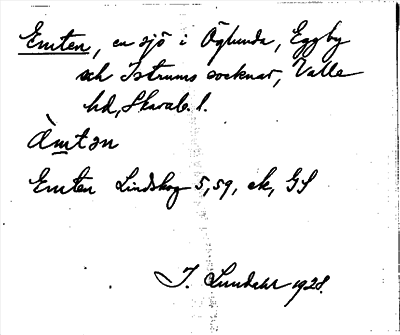 Emten, en sjö i Öglunda, Eggby
och Istrums socknar, Valle
hd, Skarab. l.
Ämtən
Emten Lindskog 5,59, ek, GS
J. Lundahl 1928.